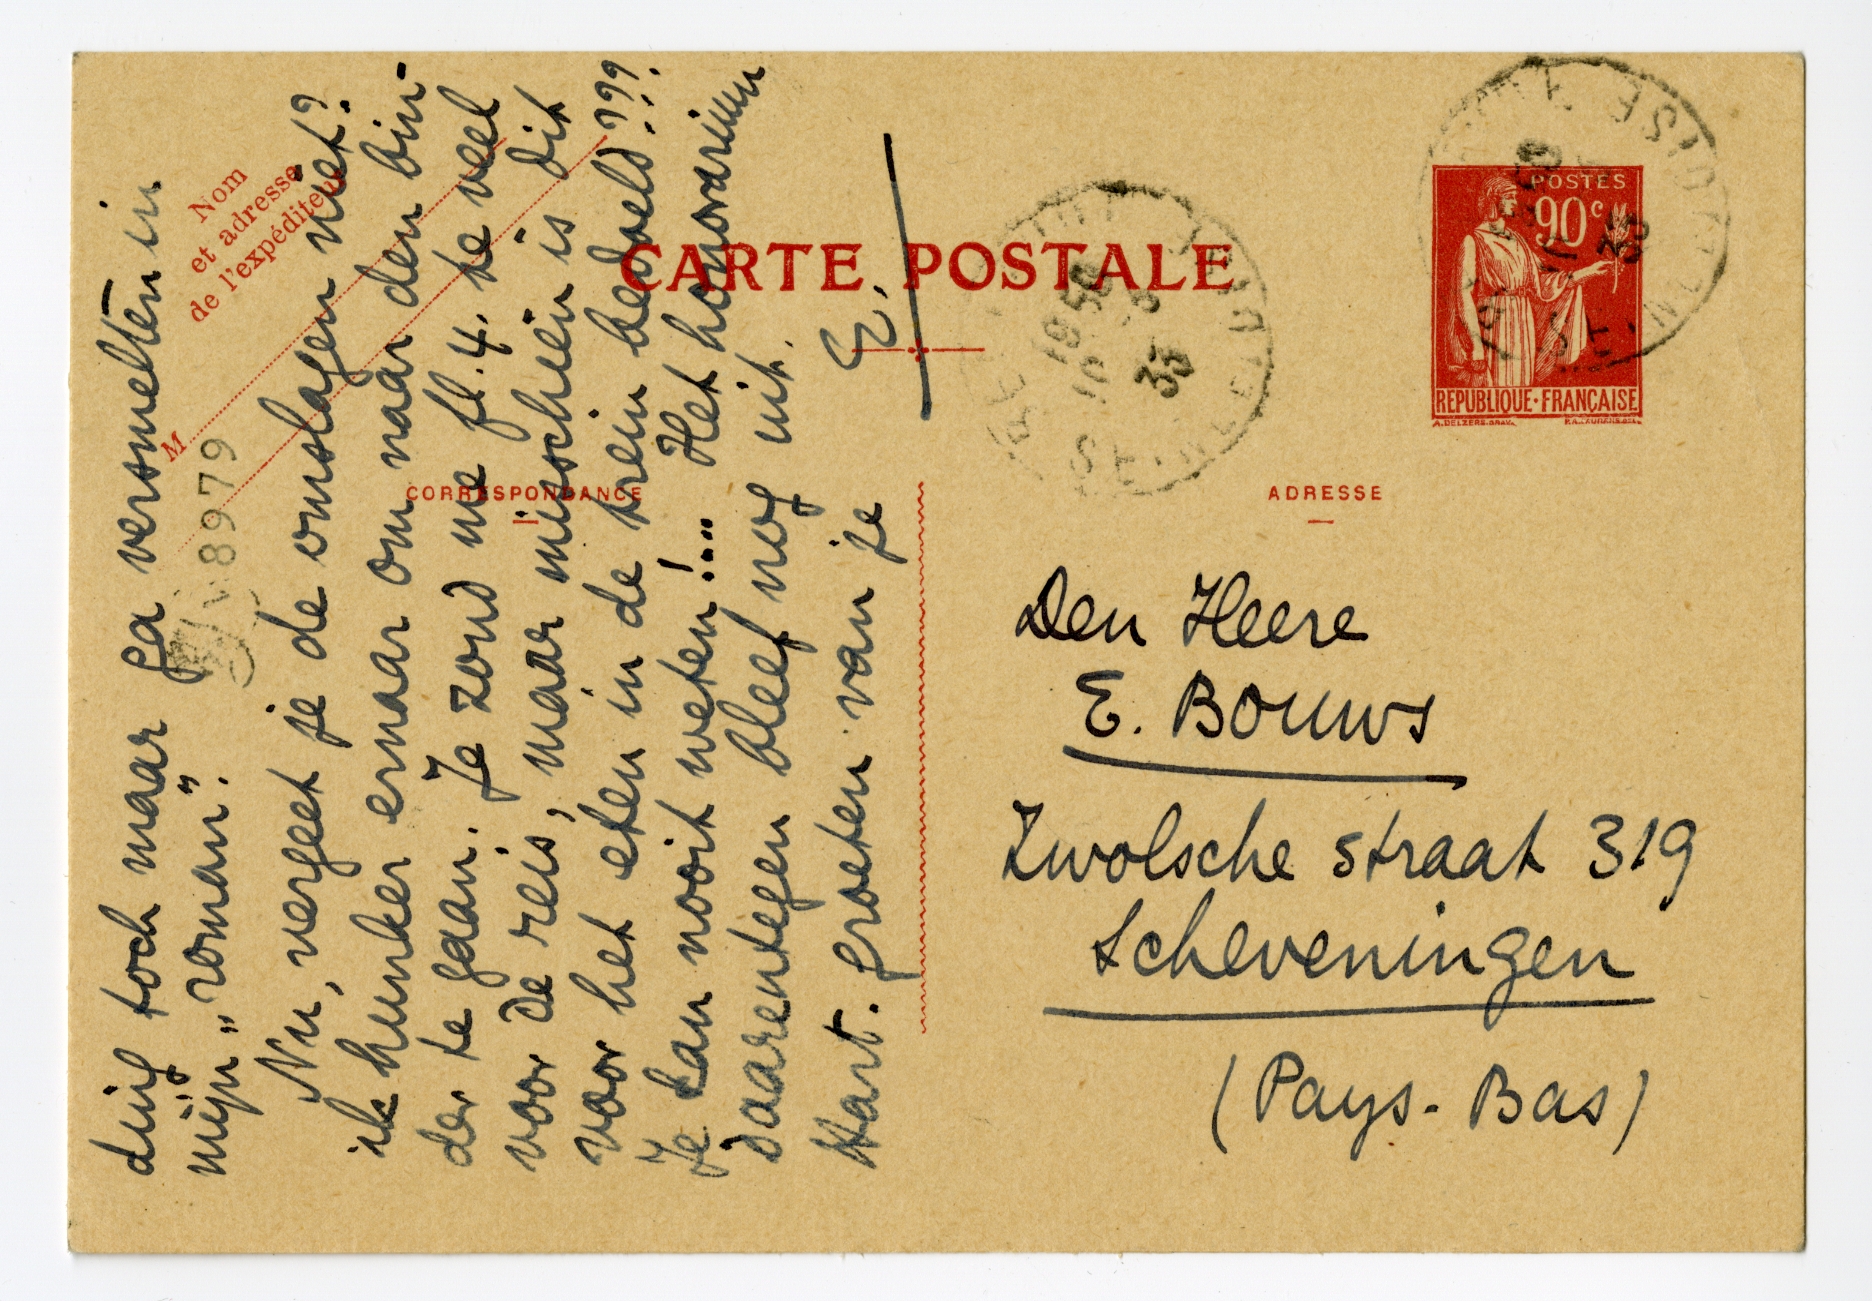 ding toch maar ga versmelten in
mijn „roman”.
Nu, vergeet je de omslagen niet?
ik hunker ernaar om naar den bin-
der te gaan. Je zond me fl. 4. te veel
voor de reis, maar misschien is dit
voor het eten in de trein bedoeld???
Je kan nooit weten!... Het honorarium
daarentegen bleef nog uit.
Hart. groeten van je
E.
Nom
et adresse
de l'expéditeur
M
8979
CARTE POSTALE
CORRESPONDANCE
ADRESSE
POSTES
90c
REPUBLIQUE·FRANÇAISE
18 50
10
35
Den Heere
E. Bouws
Zwolsche straat 319
Scheveningen
(Pays-Bas)